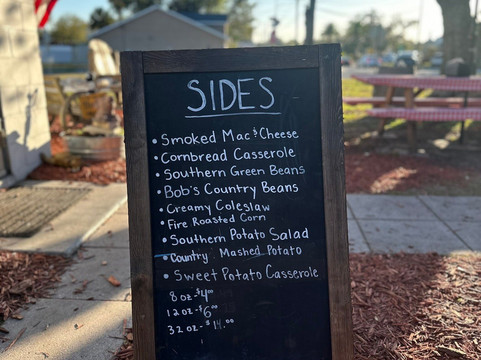 SIDES
• Smoked Mac & Cheese
• Cornbread Casserole
• Southern Green Beans
• Bob's Country Beans
• Creamy Coleslaw
• Fire Roasted Corn
• Southern Potato Salad
• Country Mashed Potato
• Sweet Potato Casserole
8 oz - $4.00
12 oz - $6.00
32 oz - $14.00